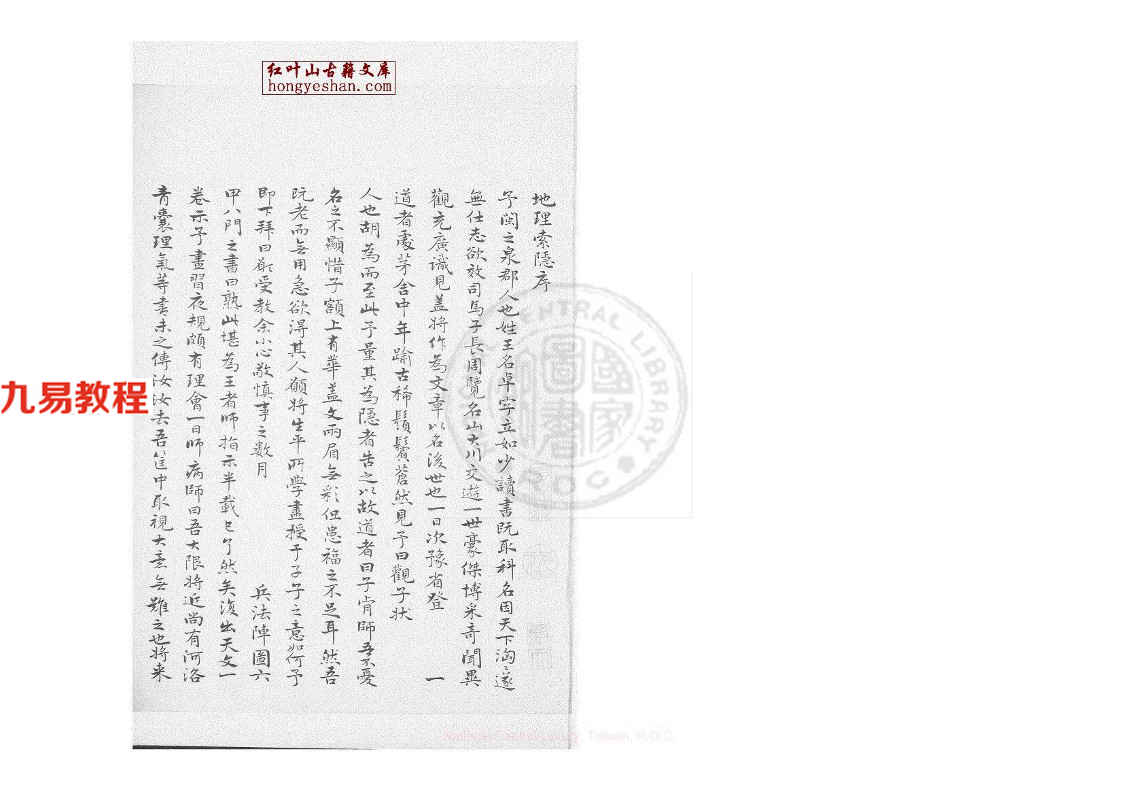 红叶山古籍文库
hongyeshan.com
九易教程
地理索隱序
予閩之泉郡人也姓王名卓字立如少讀書既取科名因天下洶洶遂
無仕志欲效司馬子長周覽名山大川交遊一世豪傑博采奇聞異
觀充廣識見盖將作為文章以名後世也一日次豫省登 一
道者處茅舍中年踰古稀鬚鬢蒼然見予曰觀子狀
人也胡為而至此予量其為隱者告之以故道者曰子肯師吾不憂
名之不顯惜子額上有華盖文兩眉無彩但患福之不足耳然吾
既老而無用急欲得其人願將生平所學盡授于子子之意如何予
即下拜曰願受教余小心敬慎事之数月 兵法陣圖六
甲八門之書曰熟此堪為王者師指示半載已了然矣復出天文一
卷示予晝習夜規頗有理會一日師病師曰吾大限將近尚有河洛
青囊理氣等書未之傳汝汝去吾筐中取視大意無難之也將来
CENTRAL LIBRARY
ROC
國家圖書